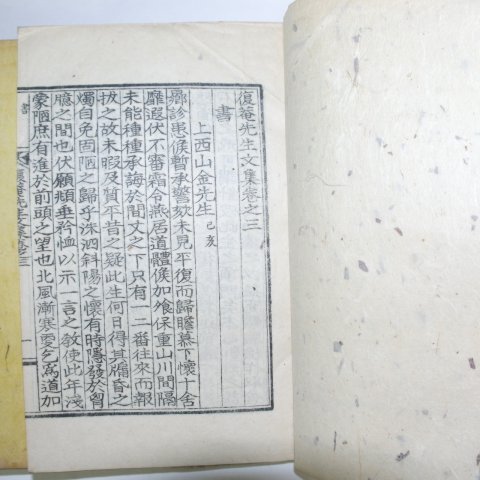 復菴先生文集卷之三
書
上西山金先生 己亥
歸診患候暫承謦欬未見平復而歸瞻慕下懷十舍
靡邇伏不審霜令燕居道體候加飧保重山川間隔
未能種種承誨於閣丈之下只有一二番往來而報
拔之故未暇及質平昔之疑此生何日得其牖昏之
燭自免固陋之歸乎洙泗斜陽之懷有時隱發於胷
臆之間也伏願頫垂矜恤以示一言之敎使此年淺
蒙陋庶有進於前頭之望也北風漸寒愛乞爲道加